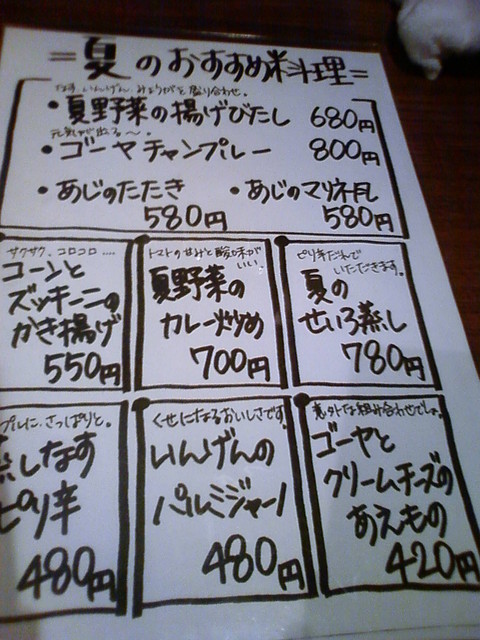 =夏のおすすめ料理=
なす、いんげん、みょうがを盛り合わせ。
・夏野菜の揚げびたし 680円
元気が出る〜。
・ゴーヤチャンプルー 800円
・あじのたたき
580円
・あじのマリネ風
580円
サクサク、コロコロ....
コーンと
ズッキーニの
かき揚げ
550円
トマトの甘みと酸味が
いい。
夏野菜の
カレー炒め
700円
ピリ辛だれで
いただきます。
夏の
せいろ蒸し
780円
プルに、さっぱりと。
蒸しなす
ピリ辛
480円
くせになるおいしさです。
いんげんの
パルミジャーノ
480円
意外な組み合わせでしょ。
ゴーヤと
クリームチーズの
あえもの
420円